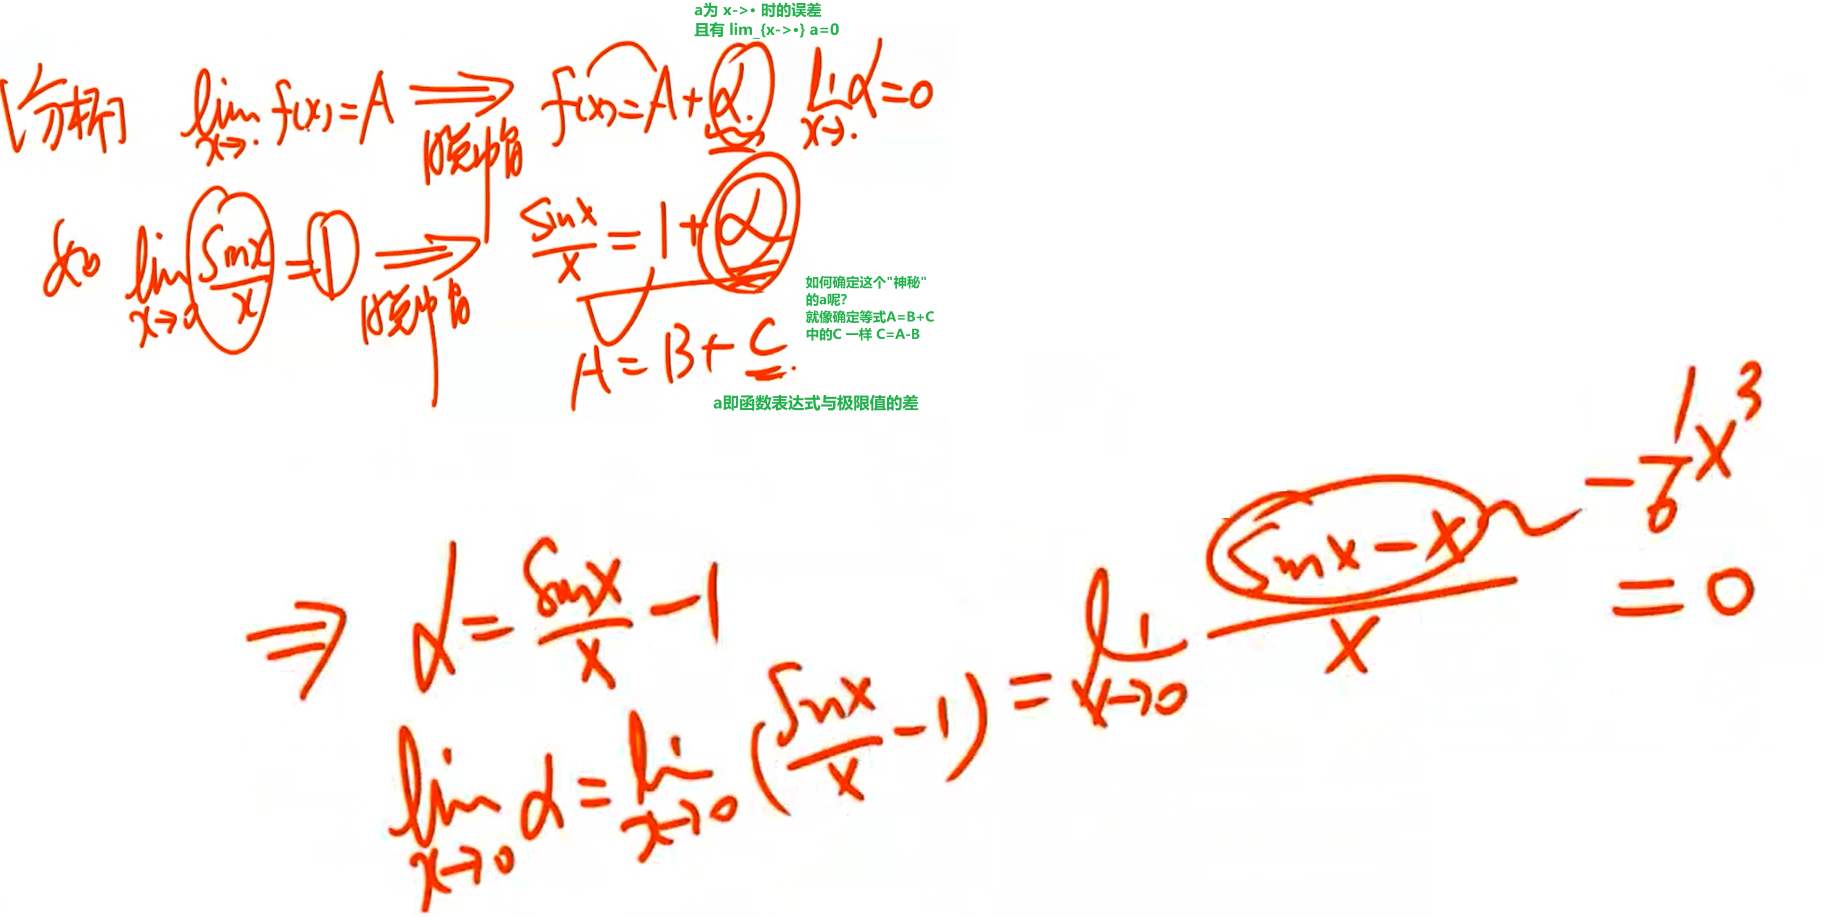 a为 x->• 时的误差
且有 lim_{x->•} a=0
[分析] lim x→· f(x)=A ⟹ 脱帽 f(x)=A+α lim x→· α=0
如 lim x→0 sinx/x = 1 ⟹ 脱帽 sinx/x = 1+α
如何确定这个"神秘"
的a呢?
就像确定等式A=B+C
中的C 一样 C=A-B
A=B+C.
a即函数表达式与极限值的差
⇒ α = sinx/x - 1
lim x→0 α = lim x→0 (sinx/x - 1) = lim x→0 (sinx-x)/x = 0
~ -1/6 x³